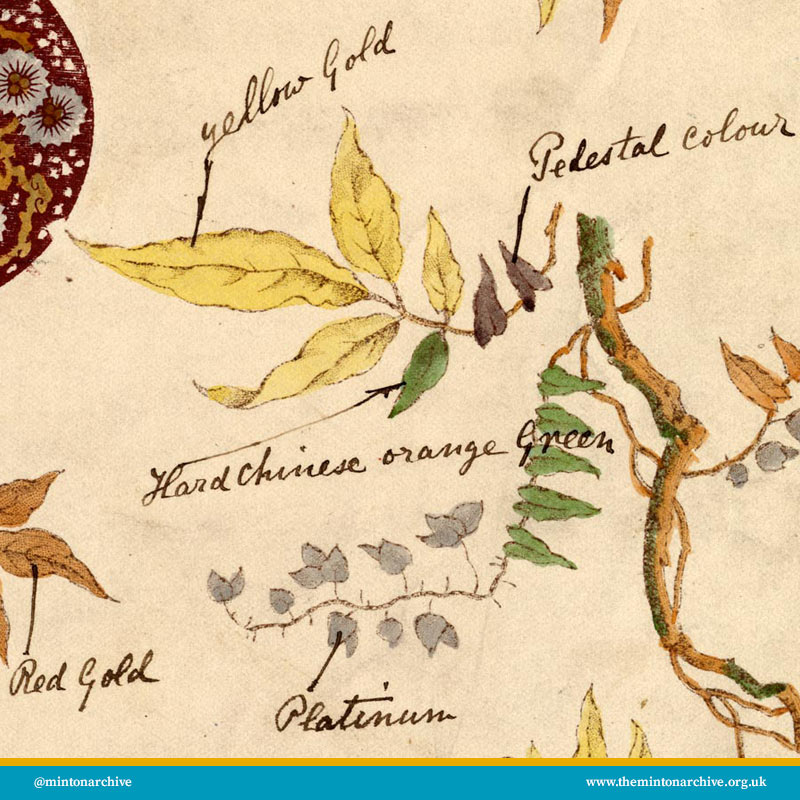 yellow Gold
Pedestal colour
Hard Chinese orange Green
Red Gold
Platinum
@mintonarchive
www.themintonarchive.org.uk